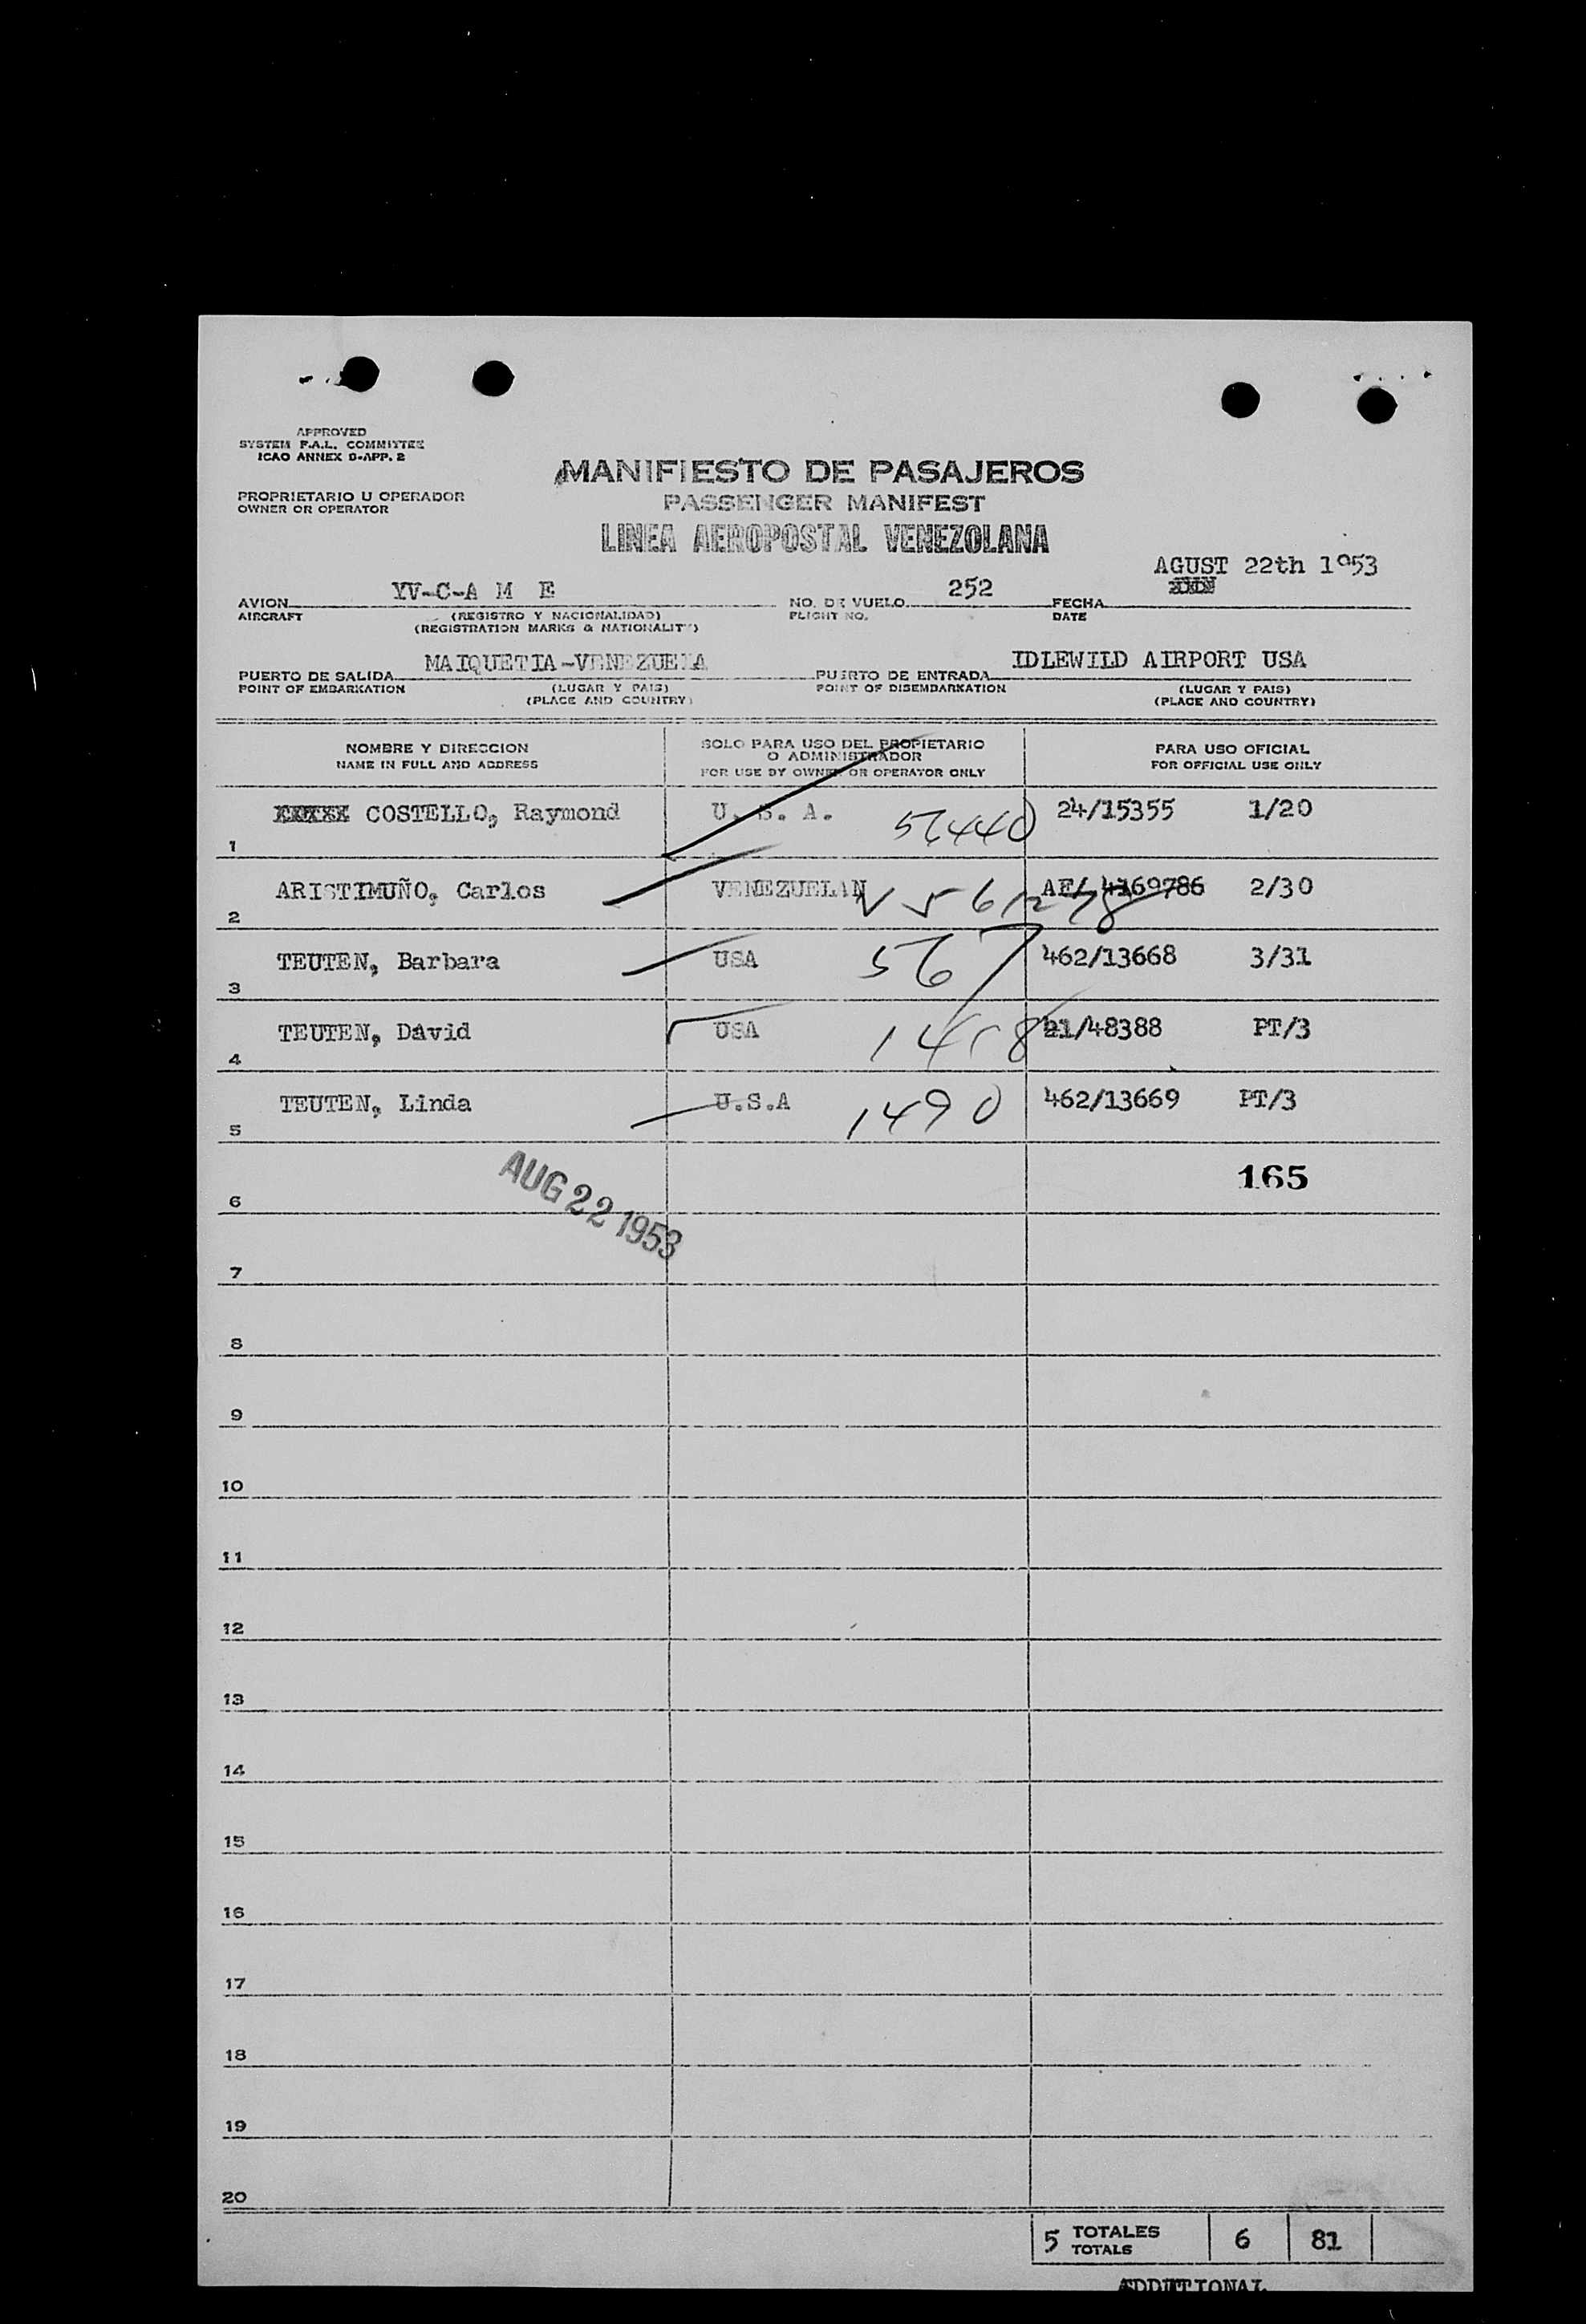 APPROVED
SYSTEM F.A.L. COMMITTEE
ICAO ANNEX 9-APP. 2
PROPRIETARIO U OPERADOR
OWNER OR OPERATOR
MANIFIESTO DE PASAJEROS
PASSENGER MANIFEST
LINEA AEROPOSTAL VENEZOLANA
AGUST 22th 1953
AVION YV-C-A M E NO. DE VUELO 252 FECHA
AIRCRAFT (REGISTRO Y NACIONALIDAD) FLIGHT NO. DATE
(REGISTRATION MARKS & NATIONALITY)
PUERTO DE SALIDA MAIQUETIA-VENEZUELA PUERTO DE ENTRADA IDLEWILD AIRPORT USA
POINT OF EMBARKATION (LUGAR Y PAIS) POINT OF DISEMBARKATION (LUGAR Y PAIS)
(PLACE AND COUNTRY) (PLACE AND COUNTRY)
NOMBRE Y DIRECCION SOLO PARA USO DEL PROPIETARIO PARA USO OFICIAL
O ADMINISTRADOR
NAME IN FULL AND ADDRESS FOR USE BY OWNER OR OPERATOR ONLY FOR OFFICIAL USE ONLY
1 COSTELLO, Raymond U. S. A. 56440 24/15355 1/20
2 ARISTIMUÑO, Carlos VENEZUELAN V 561278 4169786 2/30
3 TEUTEN, Barbara USA 567 462/13668 3/31
4 TEUTEN, David USA 1418 21/48388 PT/3
5 TEUTEN, Linda U.S.A 1490 462/13669 PT/3
165
6
AUG 22 1953
7
8
9
10
11
12
13
14
15
16
17
18
19
20
5 TOTALES 6 81
TOTALS
ADDITIONAL